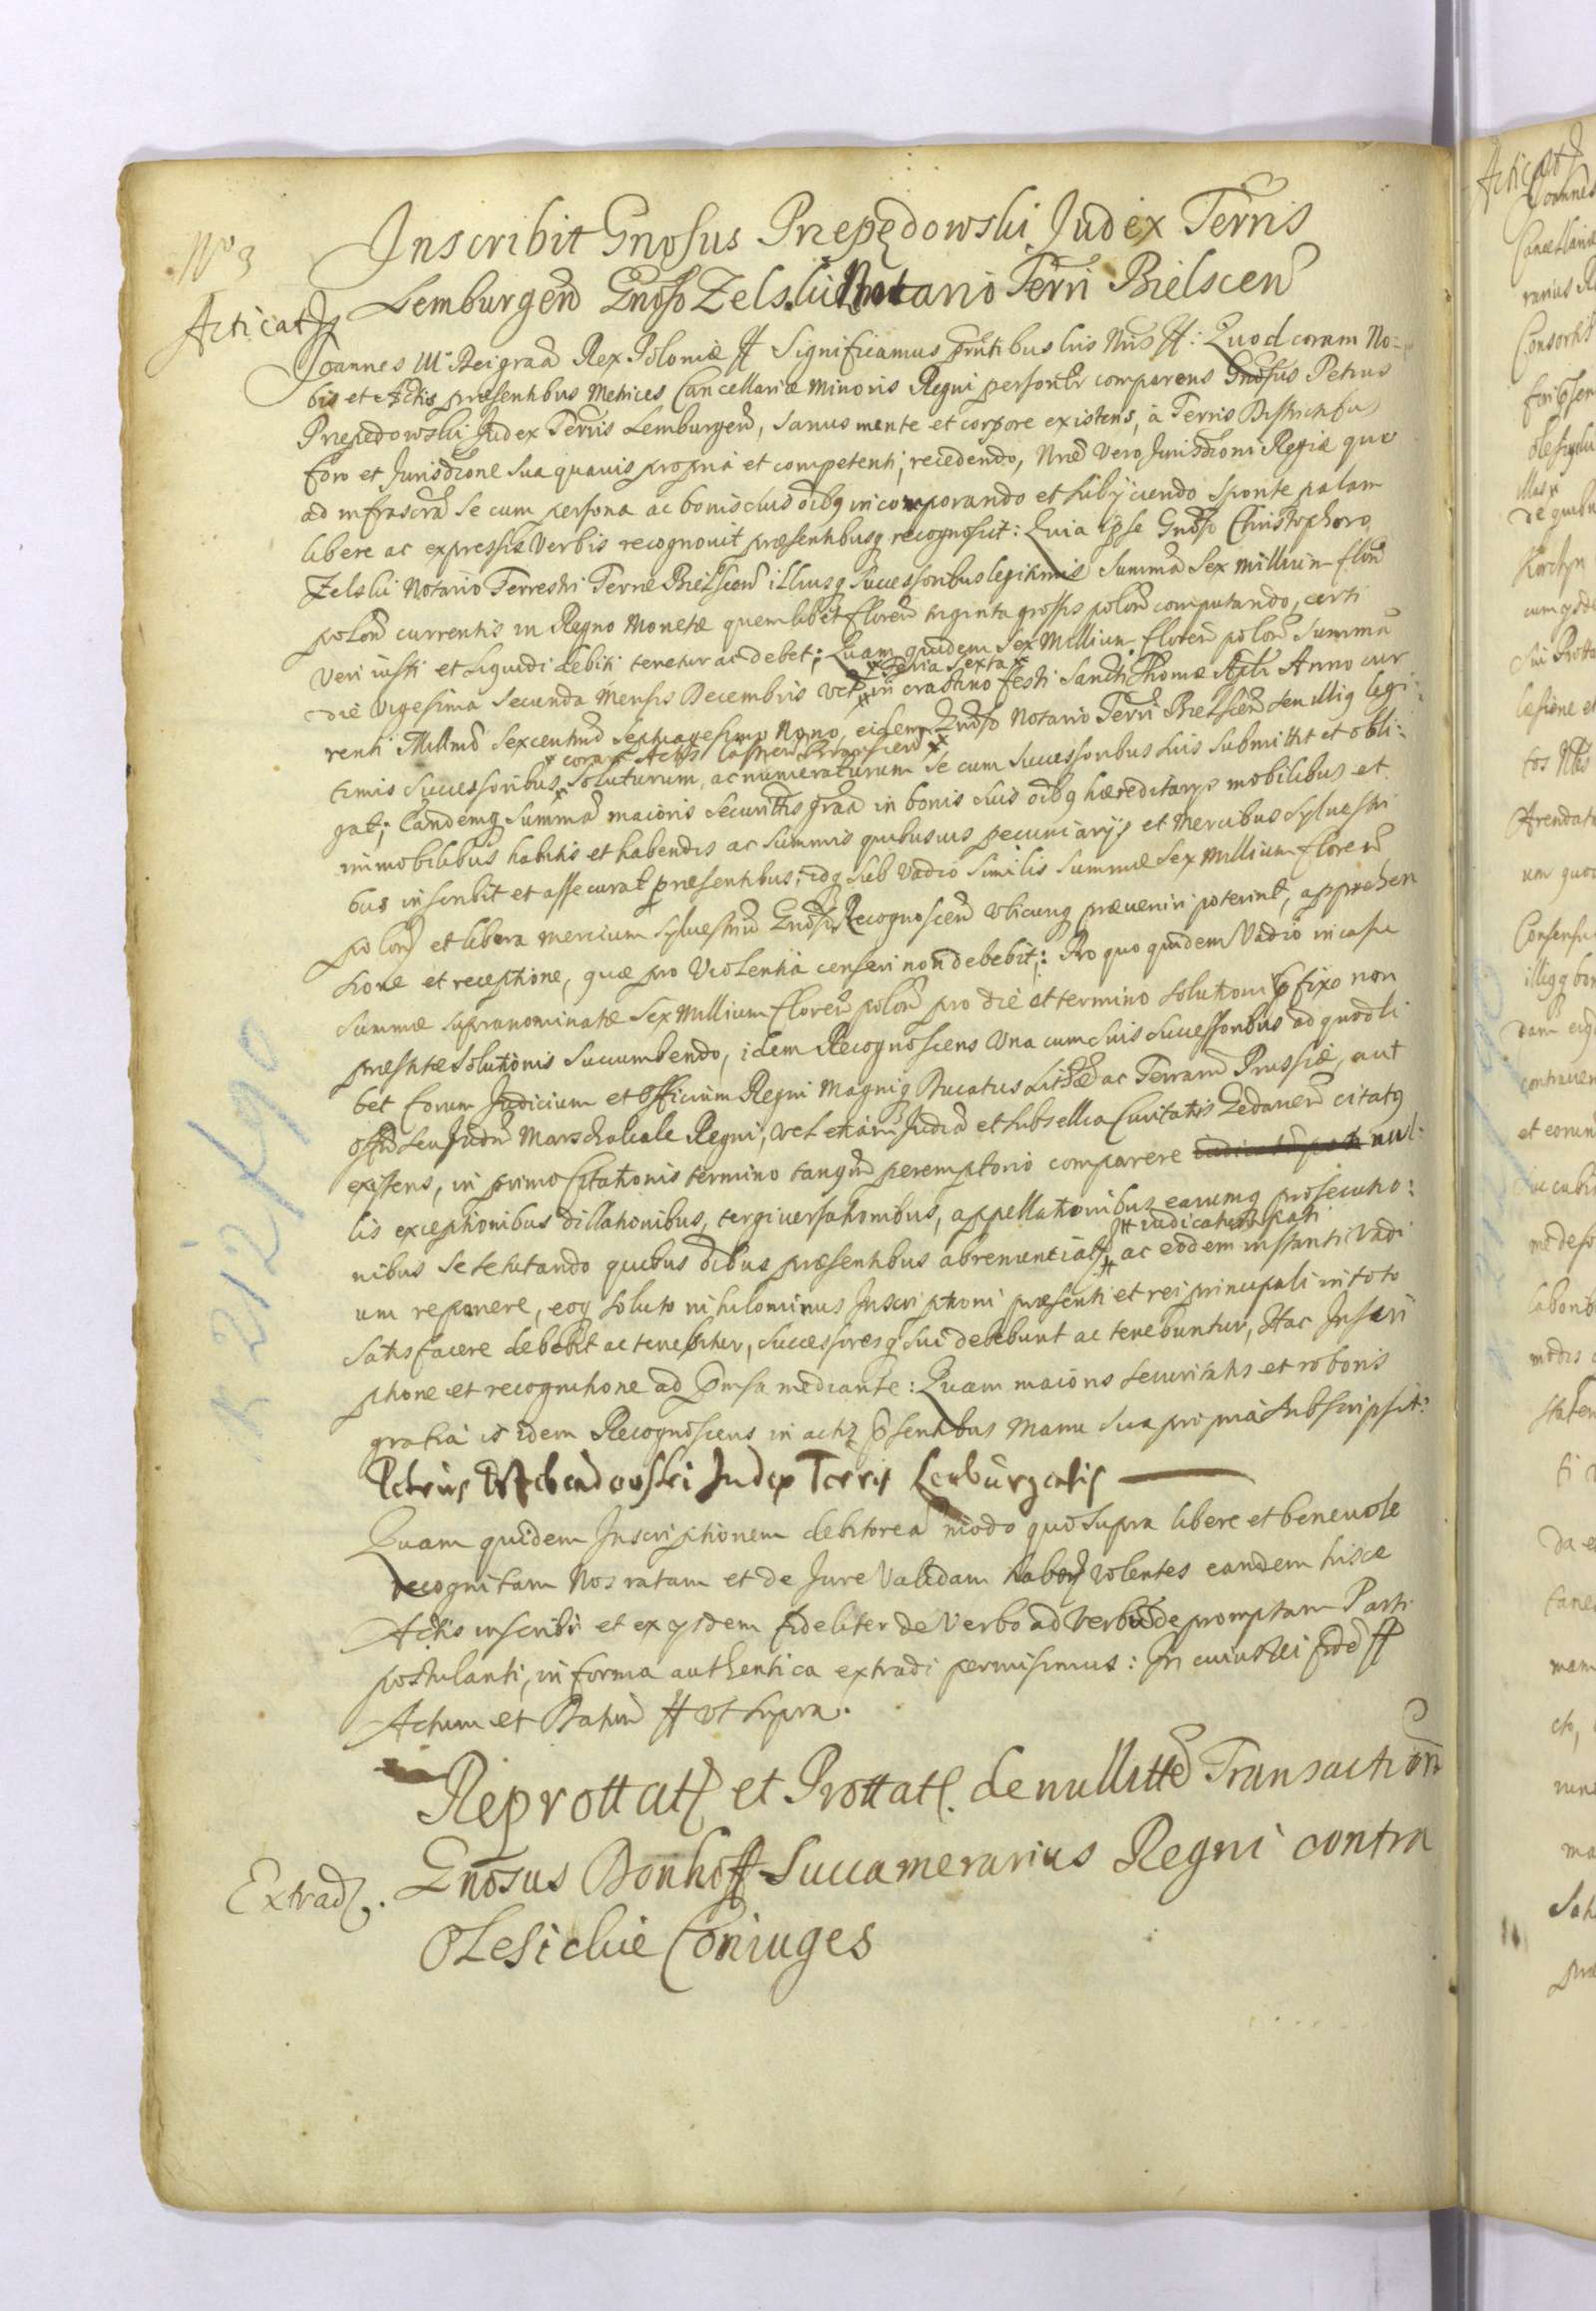 No 3
Inscribit Gnosus Przepędowski Judex Terris
Acticat
Lemburgen Gnoso Zelski Notario Terri Bielscen
Joannes III Dei graa Rex Poloniæ ff Significamus pntibus lris Nris ff: Quod coram No-
bis et Actis præsentibus Metrices Cancellariæ Minoris Regni personlr comparens Gnosus Petrus
Przepędowski Judex Terris Lemburgen, sanus mente et corpore existens, à Terris Districtibus
foro et Jurisdione sua quavis propria et competenti, recedendo, Nræ vero Jurisdioni Regiæ quo
ad infrascra se cum persona ac bonis suis oibq incorporando et subijciendo sponte palam
libere ac expressis Verbis recognovit præsentibusq recognoscit: Quia ipse Gnoso Christophoro
Zelski Notario Terrestri Terræ Bielscen illiusq Successoribus legitimis Summa Sex millium flor
polon currentis in Regno Monetæ quemlibet floren triginta grossis polon computando, certi
Veri iusti et liquidi debiti tenetur ac debet; Quam quidem Sex Millium floren polon summa
x Feria Sexta x
die vigesima secunda Mensis Decembris vel in crastino festi Sancti Thomæ Apli Anno cur
renti Millmo Sexcentmo Septuagesimo Nono, eidem Gnoso Notario Terri Bielscen seu illiq legi:
x coram Actis Castren Bransicen x
timis Successoribus soluturum, ac numeraturum se cum successoribus suis submittit et obli:
gat; Eandemq Summa maioris securittis graa in bonis suis oibq hæreditarys mobilibus et
immobilibus habitis et habendis ac summis quibusvis pecuniarijs et Mercibus sylvestri
bus inscribit et assecurat præsentibus; idq sub Vadio similis summæ Sex Millium floren
polon et libera mercium sylvestriu Gnosi Recognoscen ubicunq præveniri poterint, apprehen
sione et receptione, quæ pro Violentia censeri non debebit;: Pro quo quidem Vadio in casu
summæ supranominatæ Sex Millium floren polon pro die et termino solutioni pfixo non
præstitæ solutionis succumbendo, idem Recognoscens Una cum suis successoribus ad quodli
bet forum Judicium et Officium Regni Magniq Ducatus Lithæ ac Terraru Prussiæ, aut
offm seu Judm Marschalcale Regni, vel etiam Judia et subsellia Civitatis Gedanen citatq
existens, in primo Citationis termino tanqm peremptorio comparere nul:
lis exceptionibus dillationibus, tergiversationibus, appellationibus earumq prosecutio:
ff iudicatum pati
nibus se se tutando quibus oibus præsentibus abrenunciat, ff ac eodem instanti vadi
um reponere, eoq soluto nihilominus Inscriptioni præsenti et rei principali in toto
satisfacere debebit ac tenebitur, successoresq sui debebunt ac tenebuntur, Hac Inscri
ptione et recognitione ad pmissa mediante: Quam maioris securitatis et roboris
gratia is idem Recognoscens in actis psentibus Manu sua propria subscripsit:
Petrus Prebendowski Judex Terris Leoburgensis
Quam quidem Inscriptionem debitorea modo quo supra libere et benevole
recognitam Nos ratam et de Jure Validam habere volentes eandem hisce
Actis inscribi et ex ysdem fideliter de Verbo ad verbu depromptam Parti
postulanti, in forma authentica extradi permisimus: In cuius Rei fide ff
Actum et Datum ff ut supra.
Reprottat et Prottat. de nullitte Transaction
Extrad.
Gnosus Donhoff Succamerarius Regni contra
Olesickie Coniuges